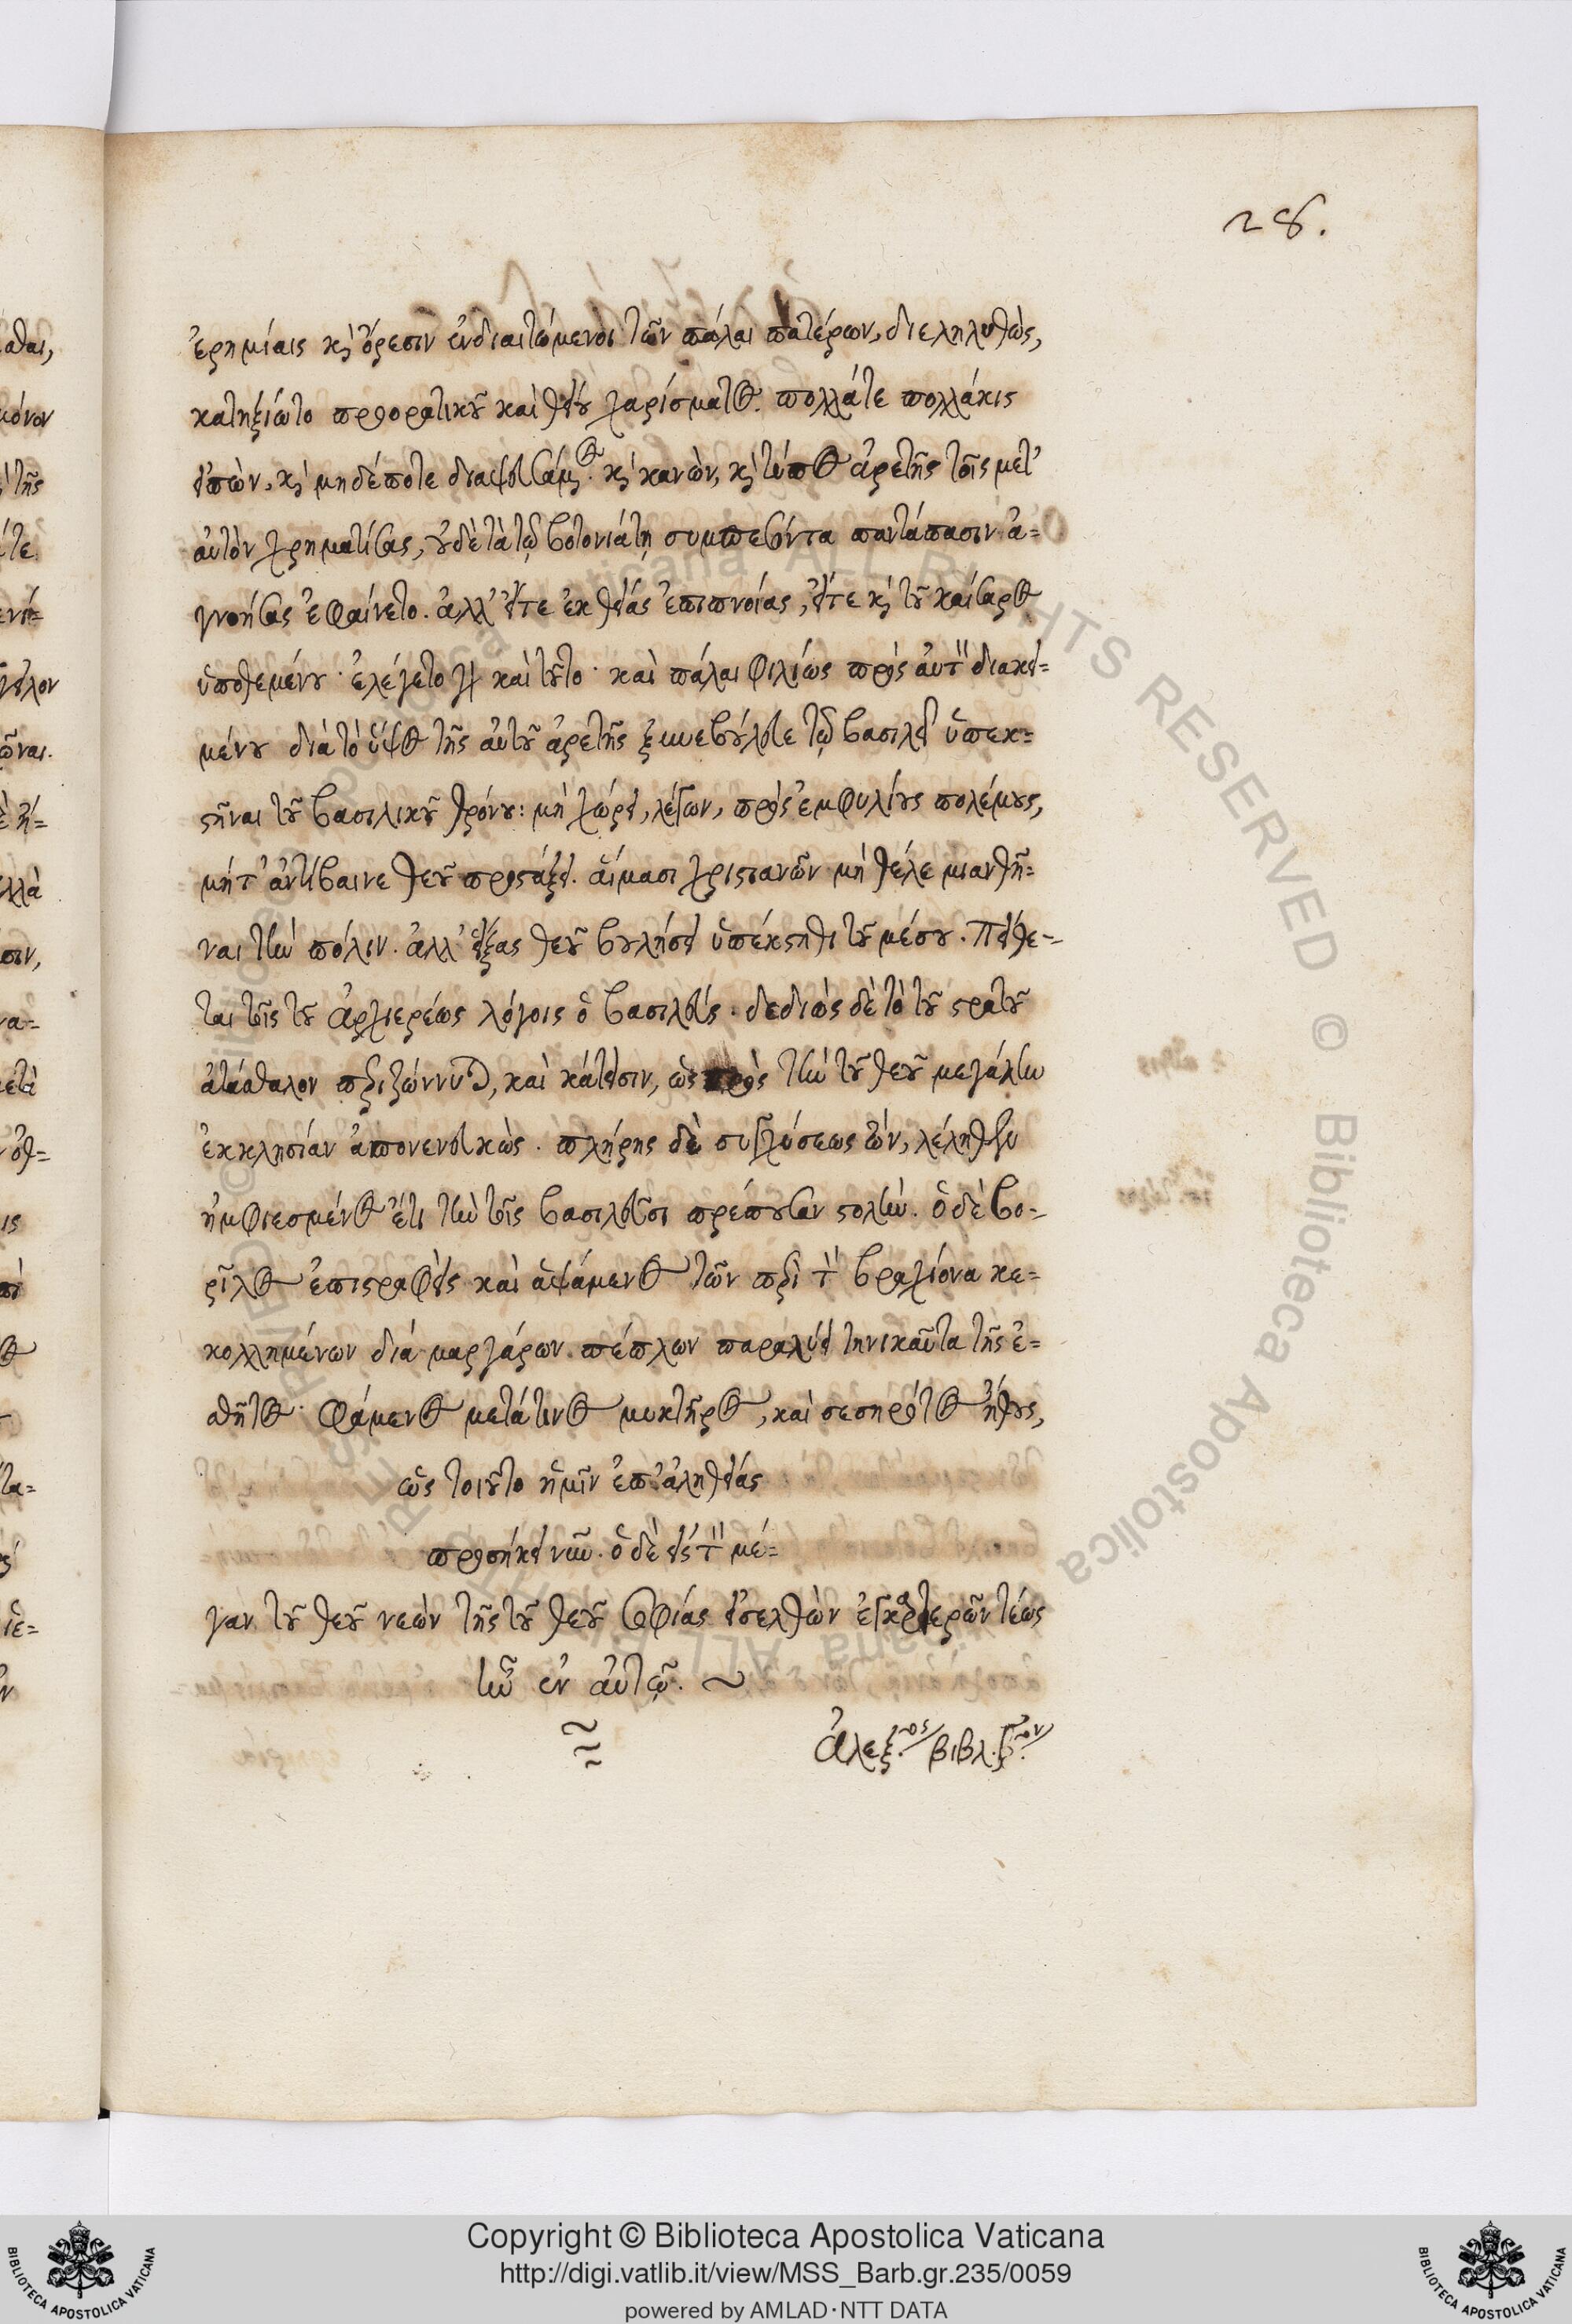 28.
ἐρημίαις κ ὄρεσιν ἐνδιαιτώμενοι τῶν πάλαι πατέρων, διεληλυθὼς,
κατηξίωτο προορατικοῦ καὶ θείου χαρίσματος. πολλάτε πολλάκις
εἰπὼν, κ μηδέποτε διαψευσάμενος. κ κανὼν, κ τύπος ἀρετῆς τοῖς μετ'
αὐτὸν χρηματίσας, οὐδὲ τὰ τῷ βοτονιάτῃ συμπεσόντα παντάπασιν ἀ=
γνοήσας ἐφαίνετο. ἀλλ' εἴτε ἐκ θείας ἐπιπνοίας, εἴτε κ τοῦ καίσαρος
ὑποθεμένου· ἐλέγετο γὰρ καὶ τοῦτο· καὶ πάλαι φιλίως πρὸς αὐτὸν διακει=
μένου διὰ τὸ ὕψος τῆς αὐτοῦ ἀρετῆς ξυνεβούλευε τῷ βασιλεῖ ὑπεκ=
στῆναι τοῦ βασιλικοῦ θρόνου: μὴ χώρει, λέγων, πρὸς ἐμφυλίους πολέμους,
μήτ' ἀντίβαινε θεοῦ προστάξει. αἵμασι χριστιανῶν μὴ θέλε μιανθῆ=
ναι τὴν πόλιν. ἀλλ' εἴξας θεοῦ βουλήσει ὑπέκστηθι τοῦ μέσου. Πείθε=
ται τοῖς τοῦ ἀρχιερέως λόγοις ὁ βασιλεύς. δεδιὼς δὲ τὸ τοῦ στρατοῦ
ἀτάσθαλον περιζώννυται, καὶ κάτεισιν, ὡς πρὸς τὴν τοῦ θεοῦ μεγάλην
ἐκκλησίαν ἀπονενευκὼς. πλήρης δὲ συγχύσεως ὢν, λέληθεν
ἠμφιεσμένος ἔτι τὴν τοῖς βασιλεῦσι πρέπουσαν στολὴν. ὁ δὲ βο=
ρῖλος ἐπιστραφεὶς καὶ ἁψάμενος τῶν περὶ τὸν βραχίονα κε=
κολλημένων διὰ μαργάρων πέπλων παραλύει τηνικαῦτα τῆς ἐ=
σθῆτος. φάμενος μετά τινος μυκτῆρος, καὶ σεσηρότος ἤθους,
ὡς τοιοῦτο ἡμῖν ἐπ' ἀληθείας
προσήκει νῦν. ὁ δὲ εἰς τὸν μέ=
γαν τοῦ θεοῦ νεὼν τῆς τοῦ θεοῦ σοφίας εἰσελθὼν ἐγκαρτερῶν τέως
ἦν ἐν αὐτῷ.
ἀλεξ.ος βιβλ. βον